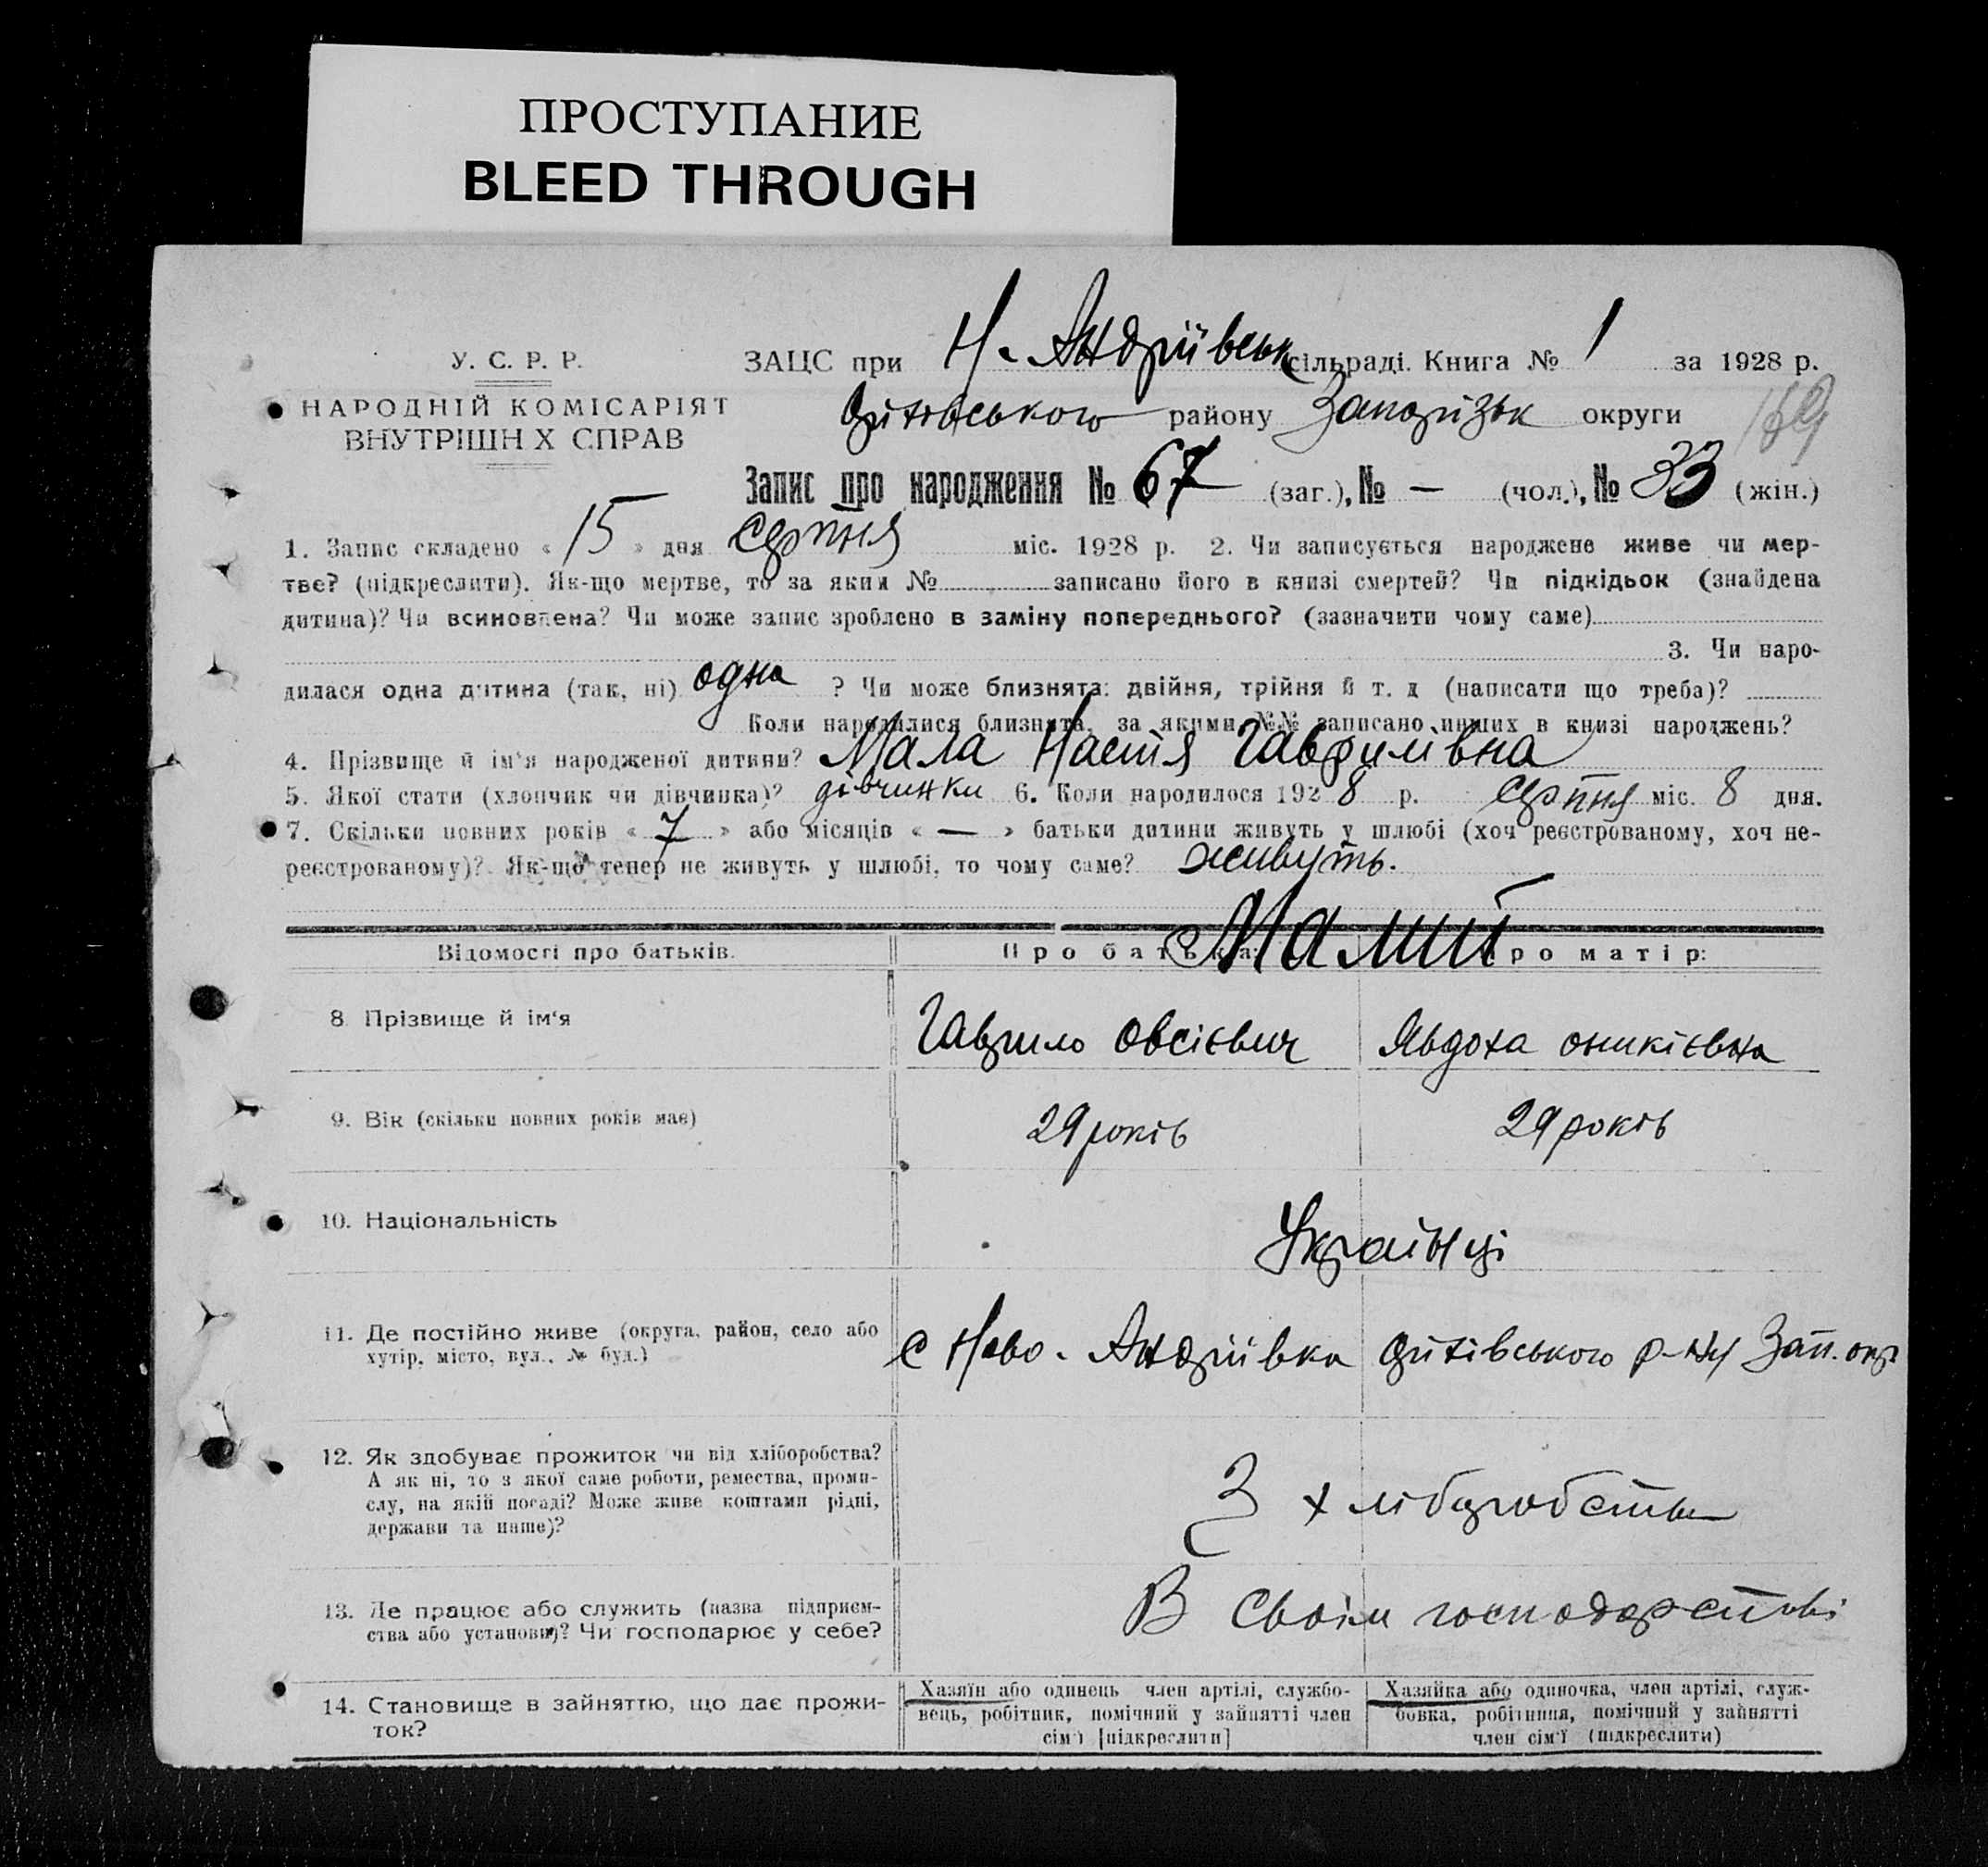 ПРОСТУПАНИЕ
BLEED THROUGH
У. С. Р. Р.
НАРОДНІЙ КОМІСАРІЯТ
ВНУТРІШН Х СПРАВ
ЗАЦС при Н. Андріївськ сільраді. Книга № 1 за 1928 р.
району Запорізьк округи
169
Запис про народження № 67 (заг.), № — (чол.), № 33 (жін.)
1. Запис складено « 15 » дня серпня міс. 1928 р. 2. Чи записується народжене живе чи мер-
тве? (підкреслити). Як-що мертве, то за яким № записано його в книзі смертей? Чи підкідьок (знайдена
дитина)? Чи всиновлена? Чи може запис зроблено в заміну попереднього? (зазначити чому саме)
3. Чи наро-
дилася одна дитина (так, ні) одна ? Чи може близнята: двійня, трійня й т. д (написати що треба)?
Коли народилися близнята, за якими №№ записано инших в книзі народжень?
4. Прізвище й ім'я народженої дитини? Мала Настя Гаврилівна
5. Якої стати (хлопчик чи дівчинка)? дівчинки 6. Коли народилося 1928 р. серпня міс. 8 дня.
7. Скільки повних років « 7 » або місяців « — » батьки дитини живуть у шлюбі (хоч реєстрованому, хоч не-
реєстрованому)? Як-що тепер не живуть у шлюбі, то чому саме? живуть.
Відомості про батьків. Про батька Про матір:
Малий
8. Прізвище й ім'я Гаврило Овсієвич Явдоха оникієвна
9. Вік (скільки повних років має) 29 років 29 років
10. Національність Українці
11. Де постійно живе (округа, район, село або
хутір, місто, вул., № буд.) с Ново-Андріївка р-ну Зап. окр
12. Як здобуває прожиток чи від хліборобства?
А як ні, то з якої саме роботи, ремества, проми-
слу, на якій посаді? Може живе коштами рідні,
держави та инше)?
З хліборобства
13. Де працює або служить (назва підприєм-
ства або установи)? Чи господарює у себе?
В своїм господарстві
14. Становище в зайняттю, що дає прожи-
ток?
Хазяїн або одинець член артілі, службо-
вець, робітник, помічний у зайнятті член
сім'ї [підкреслити]
Хазяйка або одиночка, член артілі, служ-
бовка, робітниця, помічний у зайнятті
член сім'ї (підкреслити)